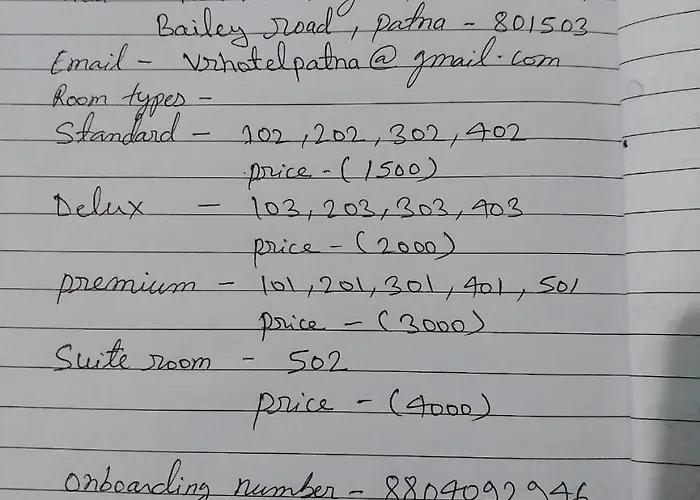 Bailey road, patna - 801503
Email - vrhotelpatna@gmail.com
Room types -
Standard - 102, 202, 302, 402
price - (1500)
Delux - 103, 203, 303, 403
price - (2000)
premium - 101, 201, 301, 401, 501
price - (3000)
Suite room - 502
price - (4000)
onboarding number - 8804092946